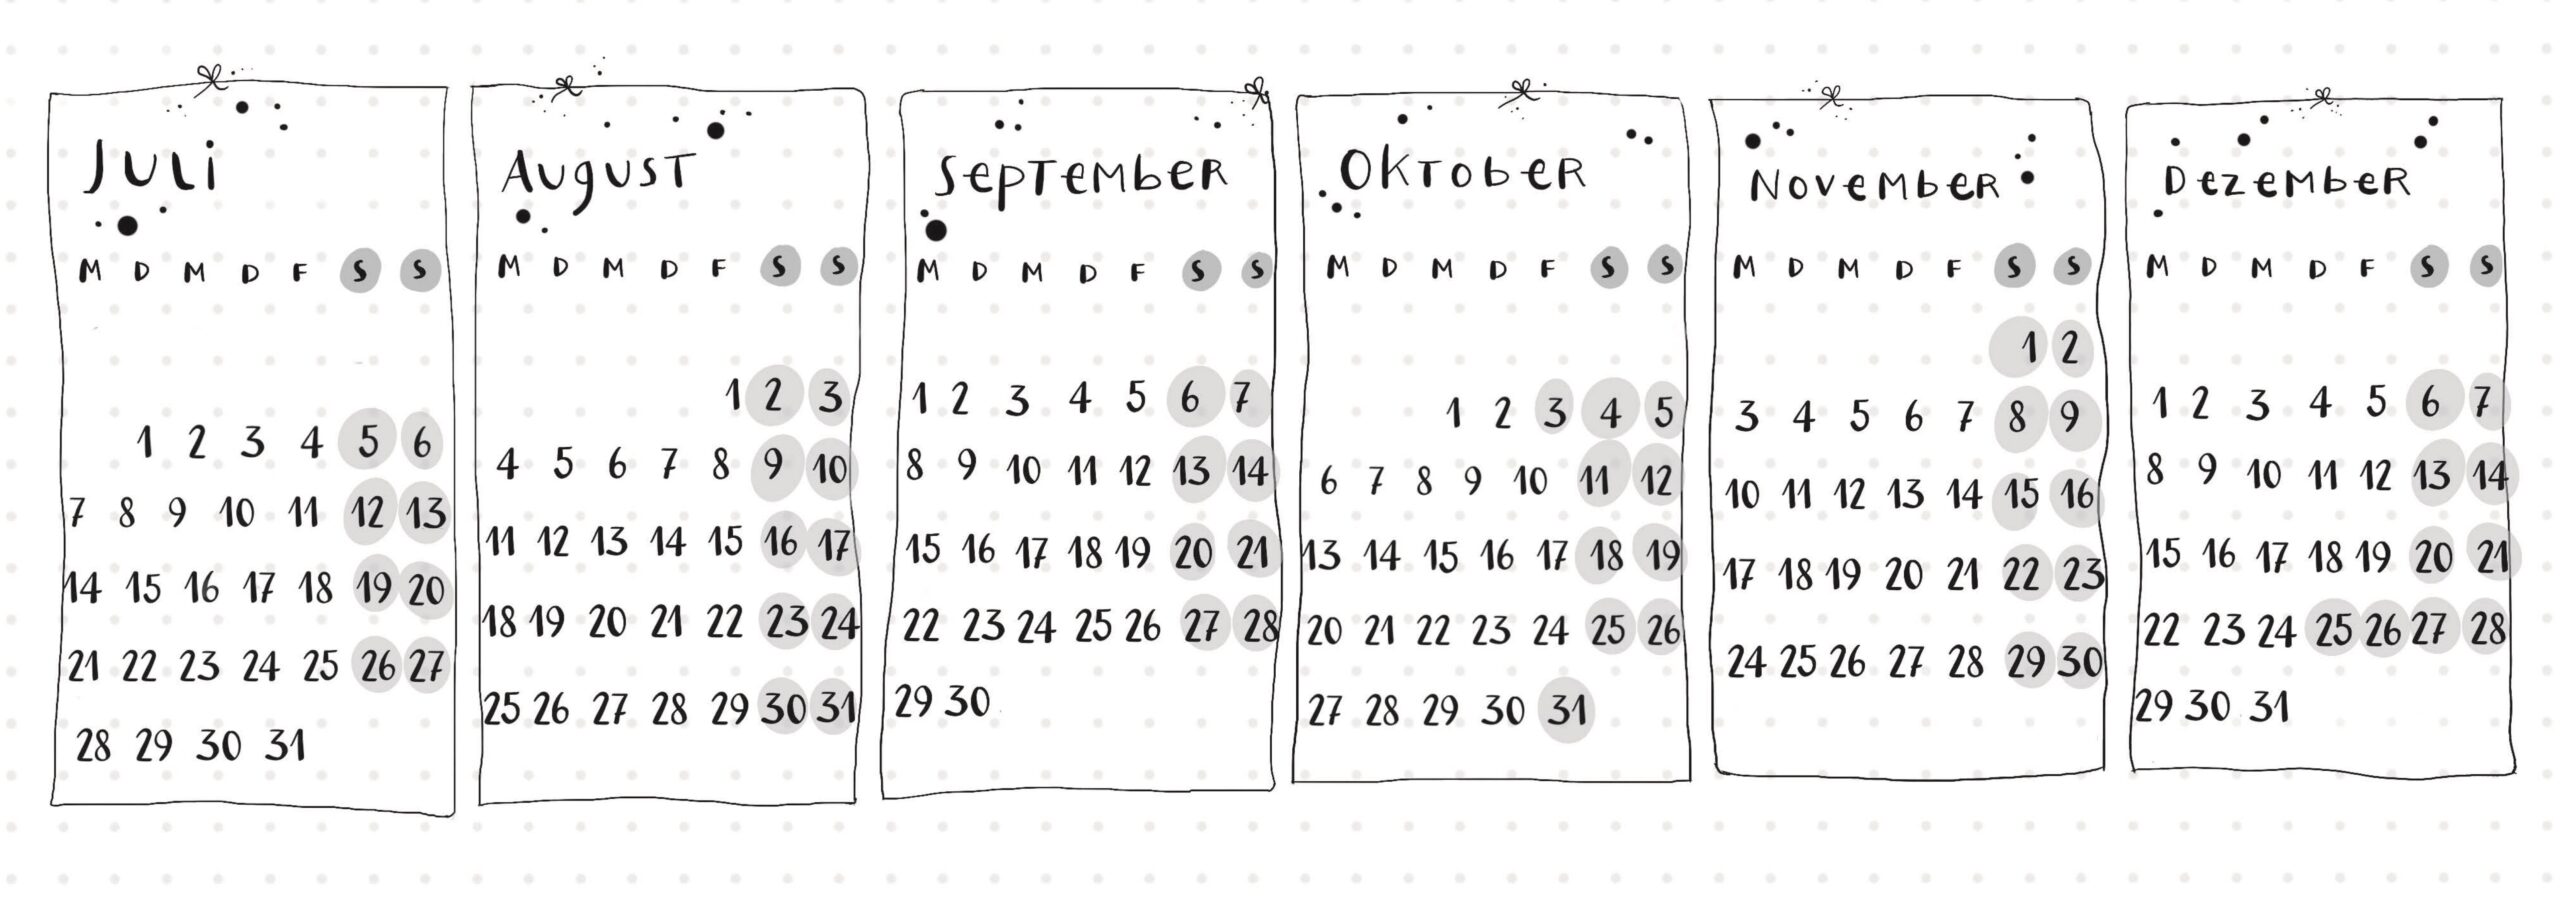 Juli
M D M D F S S
1 2 3 4 5 6
7 8 9 10 11 12 13
14 15 16 17 18 19 20
21 22 23 24 25 26 27
28 29 30 31
August
M D M D F S S
1 2 3
4 5 6 7 8 9 10
11 12 13 14 15 16 17
18 19 20 21 22 23 24
25 26 27 28 29 30 31
September
M D M D F S S
1 2 3 4 5 6 7
8 9 10 11 12 13 14
15 16 17 18 19 20 21
22 23 24 25 26 27 28
29 30
Oktober
M D M D F S S
1 2 3 4 5
6 7 8 9 10 11 12
13 14 15 16 17 18 19
20 21 22 23 24 25 26
27 28 29 30 31
November
M D M D F S S
1 2
3 4 5 6 7 8 9
10 11 12 13 14 15 16
17 18 19 20 21 22 23
24 25 26 27 28 29 30
Dezember
M D M D F S S
1 2 3 4 5 6 7
8 9 10 11 12 13 14
15 16 17 18 19 20 21
22 23 24 25 26 27 28
29 30 31